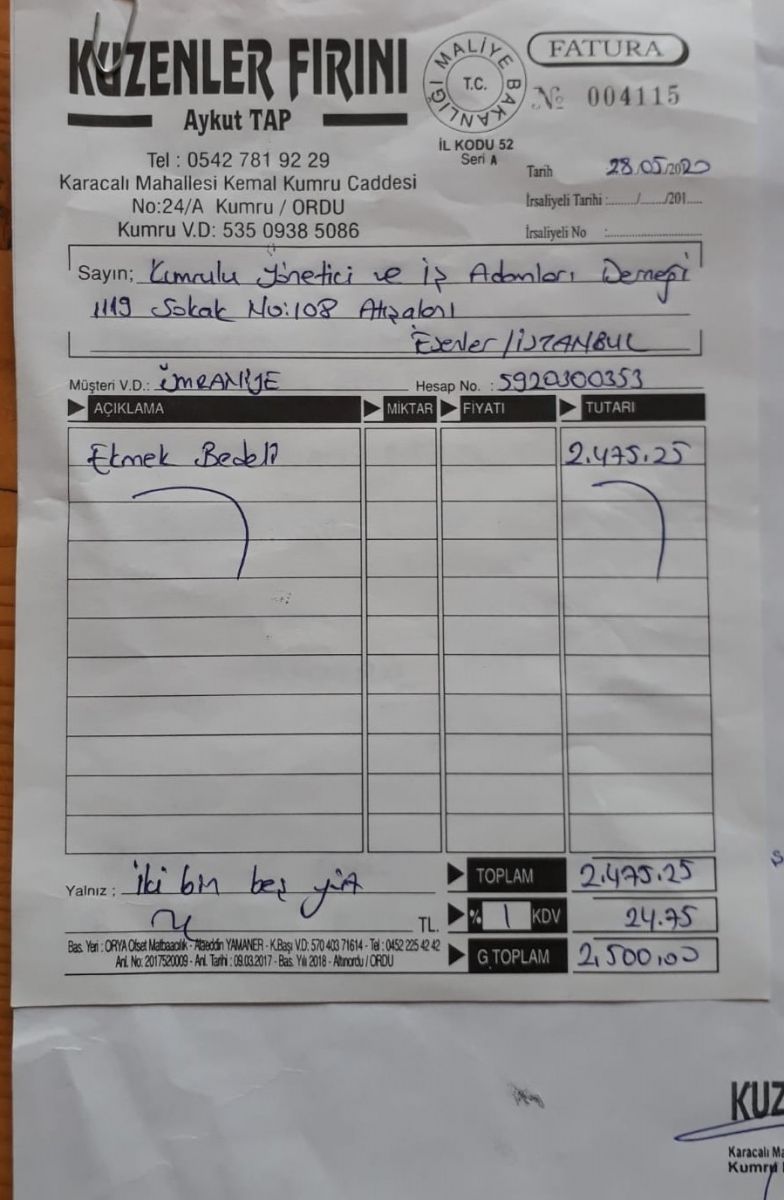 KUZENLER FIRINI
Aykut TAP
Tel : 0542 781 92 29
Karacalı Mahallesi Kemal Kumru Caddesi
No:24/A Kumru / ORDU
Kumru V.D: 535 0938 5086
T.C. MALİYE BAKANLIĞI
İL KODU 52
Seri A
FATURA
№ 004115
Tarih 28.05/2020
İrsaliyeli Tarihi :......./......./201.....
İrsaliyeli No :........................
Sayın; Kumrulu Yönetici ve İş Adamları Derneği
1119 Sokak No:108 Atışalanı
Esenler/İSTANBUL
Müşteri V.D.: ÜMRANİYE Hesap No. : 5920300353
AÇIKLAMA MİKTAR FİYATI TUTARI
Ekmek Bedeli 2.475.25
Yalnız ; İki bin beş yüz
TL.
TOPLAM 2.475.25
% 1 KDV 24.75
G.TOPLAM 2.500,00
Bas. Yeri : ORYA Ofset Matbaacılık - Alaeddin YAMANER - K.Başı V.D: 570 403 71614 - Tel : 0452 225 42 42
Anl. No: 2017520009 - Anl. Tarihi : 09.03.2017 - Bas. Yılı 2018 - Altınordu / ORDU
KUZ
Karacalı Ma
Kumru